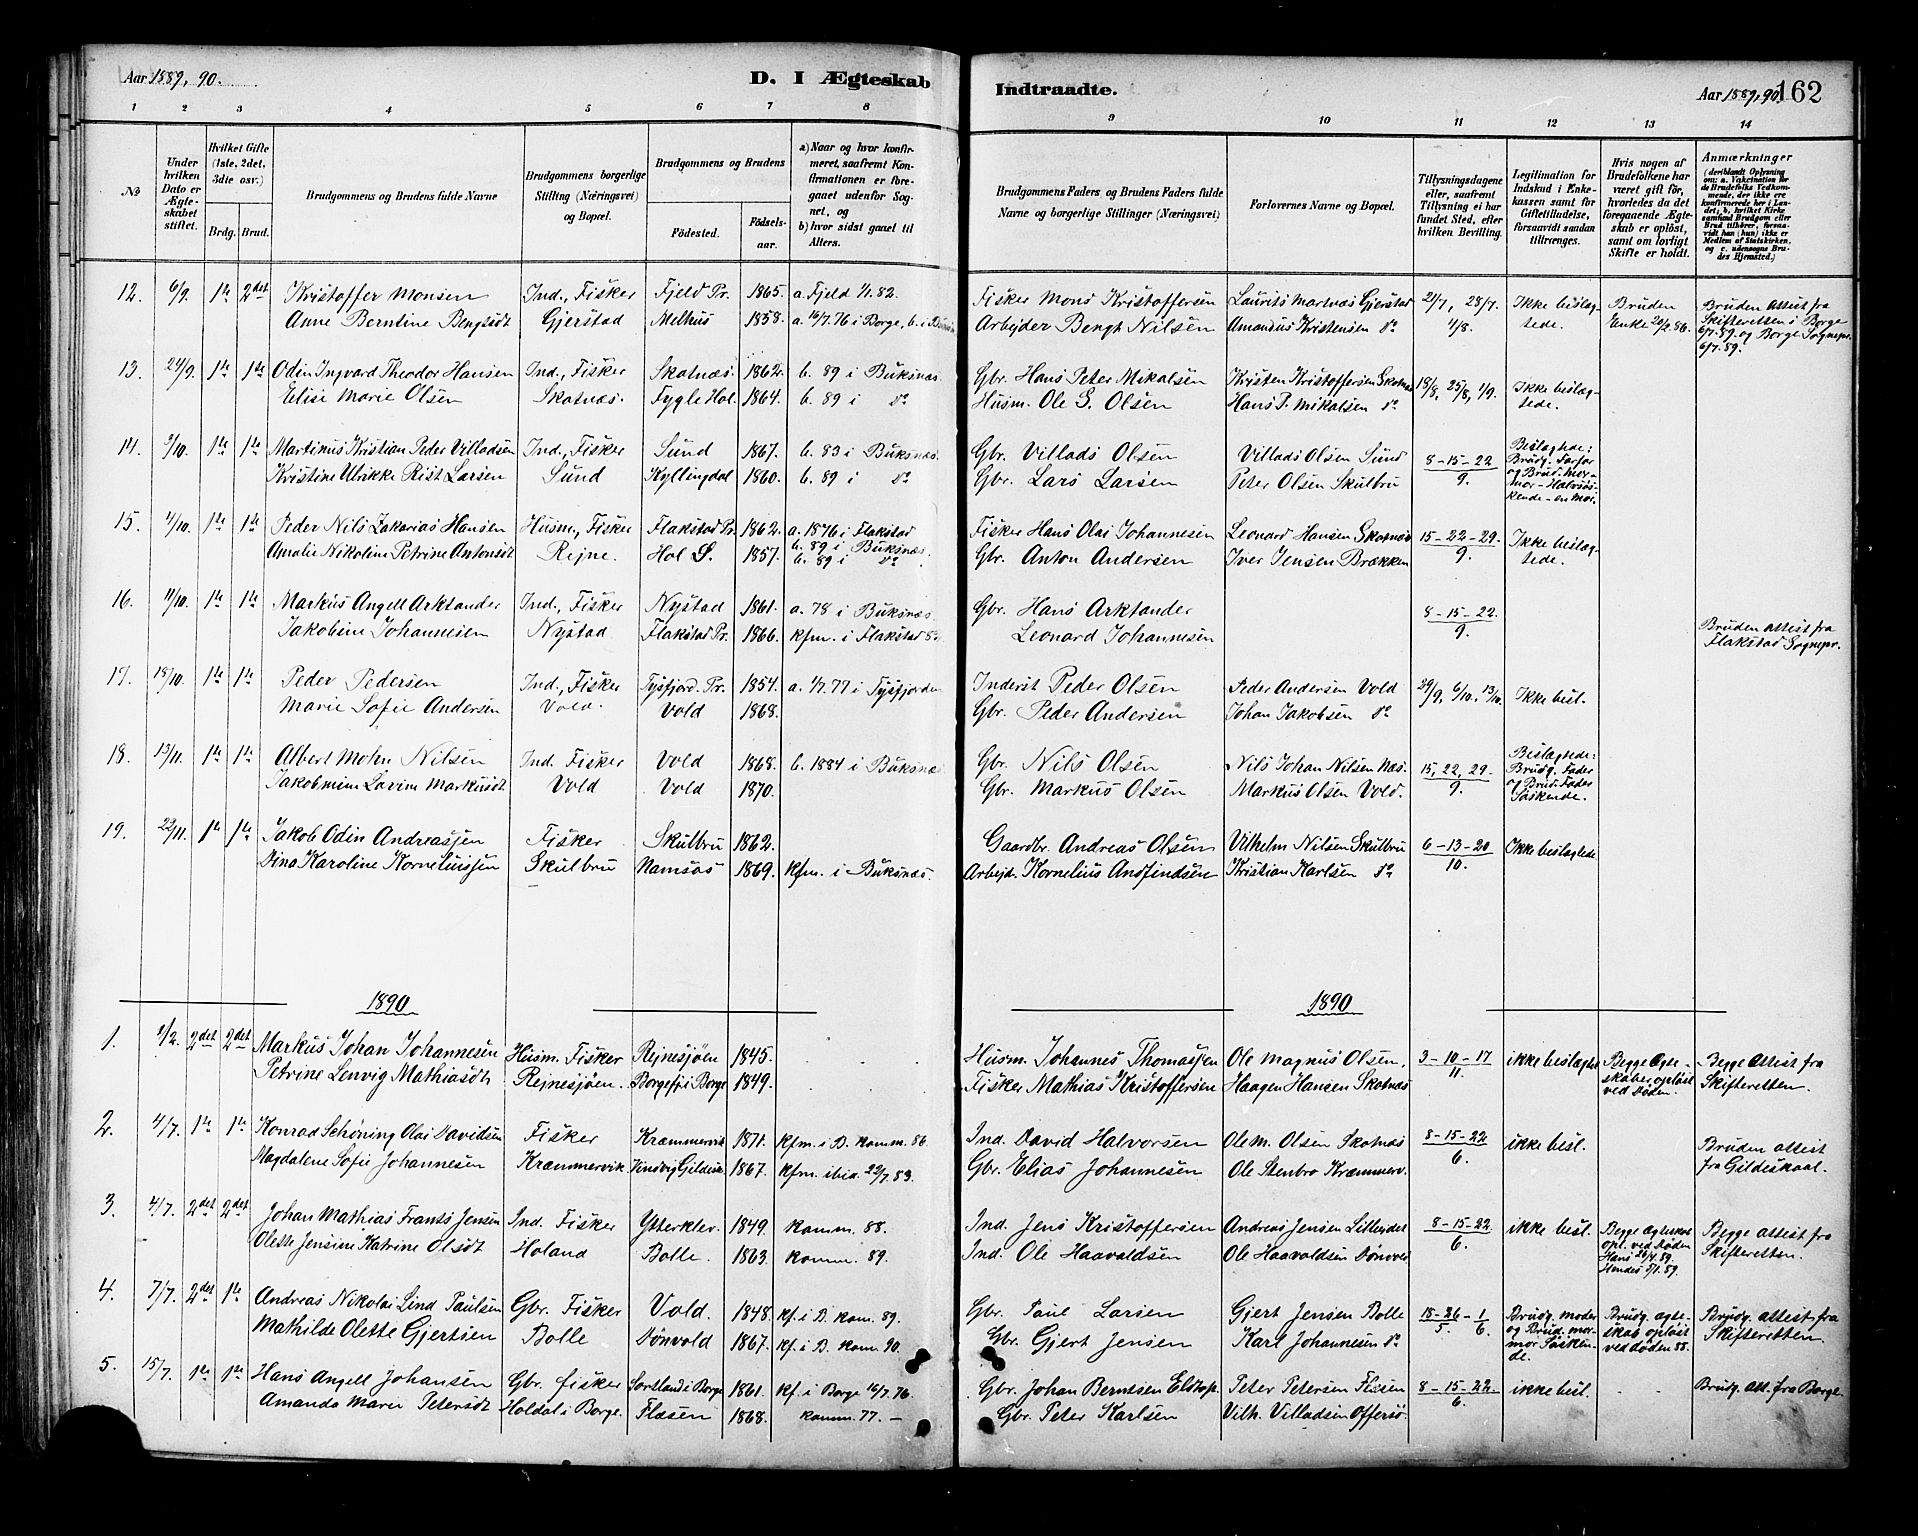 Aar 1889, 90.
D. I Ægteskab
Indtraadte.
Aar 1889, 90.
162
1 2 3 4 5 6 7 8
9 10 11 12 13 14
No
Under hvilken Dato er Ægteskabet stiftet.
Hvilket Gifte (1ste, 2det, 3die osv.)
Brdg. Brud.
Brudgommens og Brudens fulde Navne
Brudgommens borgerlige Stilling (Næringsvei) og Bopæl.
Brudgommens og Brudens
Fødested.
Fødselsaar.
a) Naar og hvor konfirmeret, saafremt Konfirmationen er foregaaet udenfor Sognet, og
b) hvor sidst gaaet til Alters.
Brudgommens Faders og Brudens Faders fulde Navne og borgerlige Stillinger (Næringsvei)
Forlovernes Navne og Bopæl.
Tillysningsdagene eller, saafremt Tillysning ei har fundet Sted, efter hvilken Bevilling.
Legitimation for Indskud i Enkekassen samt for Giftetilladelse, forsaavidt saadan tiltrænges.
Hvis nogen af Brudefolkene har været gift før, hvorledes da det foregaaende Ægteskab er opløst, samt om lovligt Skifte er holdt.
Anmærkninger (deriblandt Oplysning om: a. Vakcination for de Brudefolks Vedkommende, der ikke ere konfirmerede her i Landet; b, hvilket Kirkesamfund Brudgom eller Brud tilhører, forsaavidt han (hun) ikke er Medlem af Statskirken, og c. udensogns Brudes Hjemsted.)
12. 6/9. 1ste 2det Kristoffer Monsen Ind., Fisker Fjeld Pr. 1865. a. Fjeld 1/1. 82. Fisker Mons Kristoffersen Laurits Martnæs Gjerstad 21/7, 28/7. Ikke beslæg- Bruden Bruden attest fra
Anne Berntine Bengtsdt Gjerstad Melhus 1858. a. 16/7. 76 i Borge, Arbejder Bengt Nilsen Amandus Kristensen do 4/8. tede. Enke 86. Skifteretten i Borge
6/7. 89. og Borge Sognepr.
6/7. 89.
13. 24/9. 1ste 1ste Odin Ingvard Theodor Hansen Ind., Fisker Skotnæs. 1862. b. 89 i Buksnæs. Gbr. Hans Peter Mikalsen Kristen Kristoffersen Skotnæs 18/8, 25/8, 1/9. Ikke beslæg-
Elise Marie Olsen Skotnæs. Fygle Hol. 1864. b. 89 i do Husm. Ole S. Olsen Hans P. Mikalsen do tede.
14. 3/10. 1ste 1ste Martinus Kristian Peder Villadsen Ind., Fisker Sund 1867. b. 83 i Buksnæs. Gbr. Villads Olsen Villads Olsen Sund 8-15-22 Beslægtede:
Kristine Ulrikke Rist Larsen Sund Kyllingdal 1860. b. 89 i do Gbr. Lars Larsen Peter Olsen Skulbru 9. Brudg. Farfar
og Brud. Mor-
mor - Halvsøs-
kende - en Mor.
15. 4/10. 1ste 1ste Peder Nils Zakarias Hansen Husm., Fisker Flakstad Pr. 1862. a. 1876 i Flakstad Fisker Hans Olai Johannesen Leonard Hansen Skotnæs 15-22-29. Ikke beslæg-
b. 89 i Buksnæs.
Amalie Nikoline Petrine Antonsdt Rejne. Hol S. 1857. b. 89 i do Gbr. Anton Andersen Iver Jensen Brækken 9. tede.
16. 11/10. 1ste 1ste Markus Angell Arktander Ind., Fisker Nystad 1861. a. 78 i Buksnæs. Gbr. Hans Arktander 8-15-22.
Jakobine Johannesen Nystad Flakstad Pr. 1866. Kfm. i Flakstad Leonard Johannesen 9. Bruden attest fra
Flakstad Sognepr.
17. 18/10. 1ste 1ste Peder Pedersen Ind., Fisker Tysfjord. Pr. 1854. a. 1/7. 77 i Tysfjorden Inderst Peder Olsen Peder Andersen Vold 29/9, 6/10. 13/10. Ikke besl.
Marie Sofie Andersen Vold. Vold 1868. Gbr. Peder Andersen Johan Jakobsen do
18. 13/11. 1ste 1ste Albert Mohn Nilsen Ind. Fisker Vold 1868. b. 1884 i Buksnæs Gbr. Nils Olsen Nils Johan Nilsen Næs. 15, 22, 29. Beslægtede:
Jakobmine Lavine Markusdt Vold Vold 1870. Gbr. Markus Olsen Markus Olsen Vold. 9. Brudg. Fader
og Brud. Fader
Søskende.
19. 22/11. 1ste 1ste Jakob Odin Andreassen Fisker Skulbru 1862. Gaardbr. Andreas Olsen Vilhelm Nilsen Skulbru 6-13-20 Ikke beslægtede
Dina Karoline Korneliussen Skulbru Namsos 1869. Kfm. i Buksnæs. Arbejd. Kornelius Ansfindsen Kristian Karlsen do 10.
1890
1890
1. 1/2. 2det 2det Markus Johan Johannesen Husm. Fisker Rejnesjøen 1845. Husm. Johannes Thomassen Ole Magnus Olsen, 3-10-17 ikke beslægtet Begge Ægte- Begge Attest fra
Petrine Lenvig Mathiasdt Rejnesjøen. Borgefj i Borge 1849. Fisker Mathias Kristoffersen Haagen Hansen Skotnæs 11. skaber opløst Skifteretten.
ved Døden.
2. 4/7. 1ste 1ste Konrad Schöning Olai Davidsen Fisker Kræmmervik 1871. Kfm. i B. komm. 86. Ind. David Halvorsen Ole M. Olsen Skotnæs 8-15-22 ikke besl. Bruden attest
Magdalene Sofie Johannesen Kræmmervik. Gildesk. 1867. Kfm. ibid. 22/7. 83. Gbr. Elias Johannesen Ole Stenbro Kræmmerv. 6. fra Gildeskaal.
3. 4/7. 2det 2det Johan Mathias Frants Jensen Ind. Fisker Ytterklev. 1849. komm. 88. Ind. Jens Kristoffersen Andreas Jensen 8-15-22. ikke besl. Begge Ægteskab Begge attest fra
Olette Jensine Katrine Olsdt Holand Bolle. 1863. komm. 89. Ind. Ole Haavaldsen Ole Haavaldsen Dønvold 6. opl. ved Døden Skifteretten.
Hans 26/4. 89.
Hendes 5/1. 89.
4. 7/7. 2det 1ste Andreas Nikolai Lind Paulsen Gbr. Fisker Vold. 1848. Kf. i B. kom. 89. Gbr. Paul Larsen Gjert Jensen Bolle 18-26-1 Brudg. moder Brudg. ægte- Brudg. attest fra
Mathilde Olette Gjertsen Bolle Dønvold 1867. Kf. i B. kom. 90. Gbr. Gjert Jensen Karl Johannesen do 5. 6. og Brud. mor- skab opløst Skifteretten.
mor Søsken- ved Døden 88.
de.
5. 15/7. 1ste 1ste Hans Angell Johansen Gbr. fisker Sortland i Borge 1861. Kf. i Borge 16/7. 76 Gbr. Johan Berntsen Peter Petersen Flæsen 8-15-22. ikke besl. Brudg. att. fra Borge.
Amanda Marie Petersdt Holdal i Borge. Flæsen 1868. komm. 77. Gbr. Peter Karlsen Vilh. Villadsen Offersø. 6.